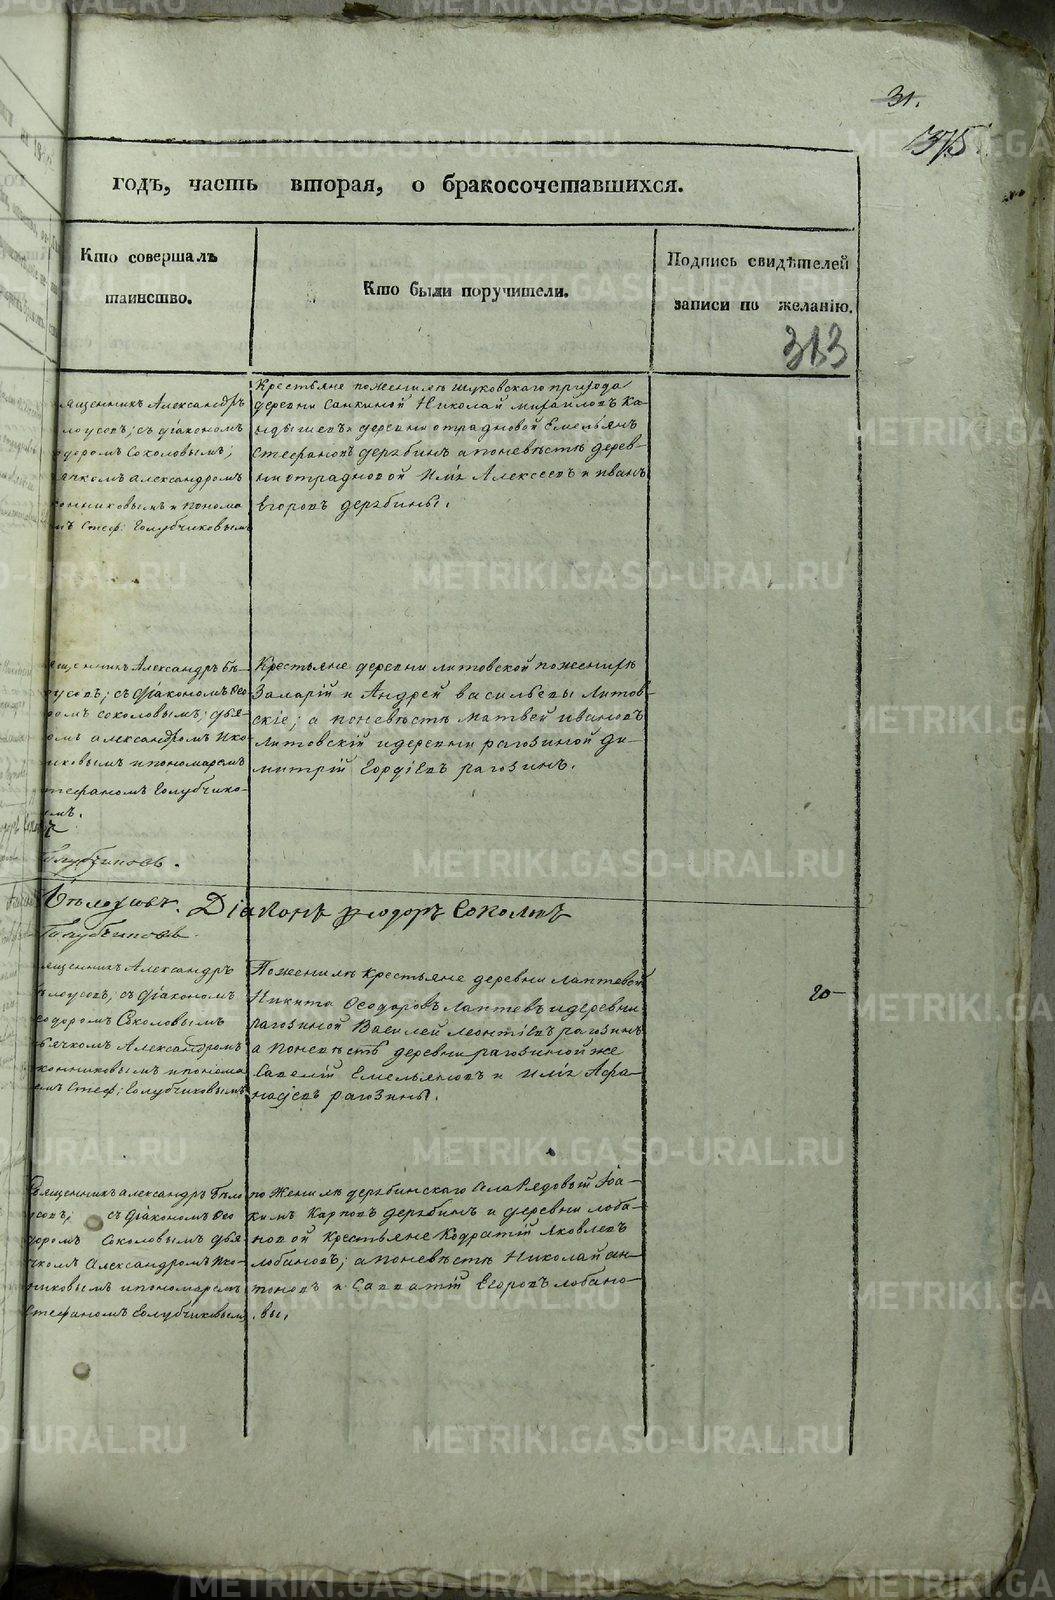 31.
375
годъ, часть вторая, о бракосочетавшихся.
Кто совершалъ
таинство.
Кто были поручители.
Подпись свидѣтелей
записи по желанію.
313
ященникъ Александръ
лоусовъ; съ діакономъ
одоромъ Соколовымъ;
ячкомъ александромъ
конниковымъ и понома
мъ Стеф: Голубчиковымъ
Крестьяне поженихѣ прихода
деревни Санкиной Николай михайловъ Ка-
и деревни отрадновой Емельянъ
Стефановъ дерябинъ а поневѣстѣ дерев-
ни отрадновой Илiя Алексеевъ и иванъ
Егоровъ дерябины.
ященникъ Александръ Бѣ-
оусовъ; съ діакономъ Ѳео
ромъ соколовымъ; дья-
омъ александромъ Ико-
никовымъ и пономаремъ
тефаномъ Голубчико-
ымъ.
Крестьяне деревни литовской поженихѣ
Андрей васильевы Литов-
скіе; а поневѣстѣ матвей ивановъ
Литовскій и деревни рагозиной ди-
митрій Гордіевъ рагозинъ.
Голубчиковъ.
Бѣлоусовъ. Діаконъ Ѳеодоръ Соколовъ
Голубчиковъ.
ященникъ Александръ
ѣлоусовъ; съ діакономъ
еодоромъ Соколовымъ
ьячкомъ Александромъ
конниковымъ и понома
емъ Стеф: Голубчиковымъ
Поженихѣ крестьяне деревни лаптевой
Никита Ѳеодоровъ Лаптевъ и деревни
рагозиной Василей леонтіевъ рагозинъ
а поневѣстѣ деревни рагозиной же
Савелій Емельяновъ и Илія Афа-
насіевъ рагозины.
20-
Священникъ александръ Бѣло
усовъ; съ діакономъ Ѳео
доромъ Соколовымъ дья-
чкомъ Александромъ Ико-
никовымъ и пономаремъ
Стефаномъ Голубчиковымъ
поженихѣ дерябинскаго села рядовой Іоа-
кимъ Карповъ дерябинъ и деревни лоба-
новой крестьяне Кодратій яковлевъ
лобановъ; а поневѣстѣ Николай ан-
тоновъ и Савватій Егоровъ лобано-
вы.
METRIKI.GASO-URAL.RU